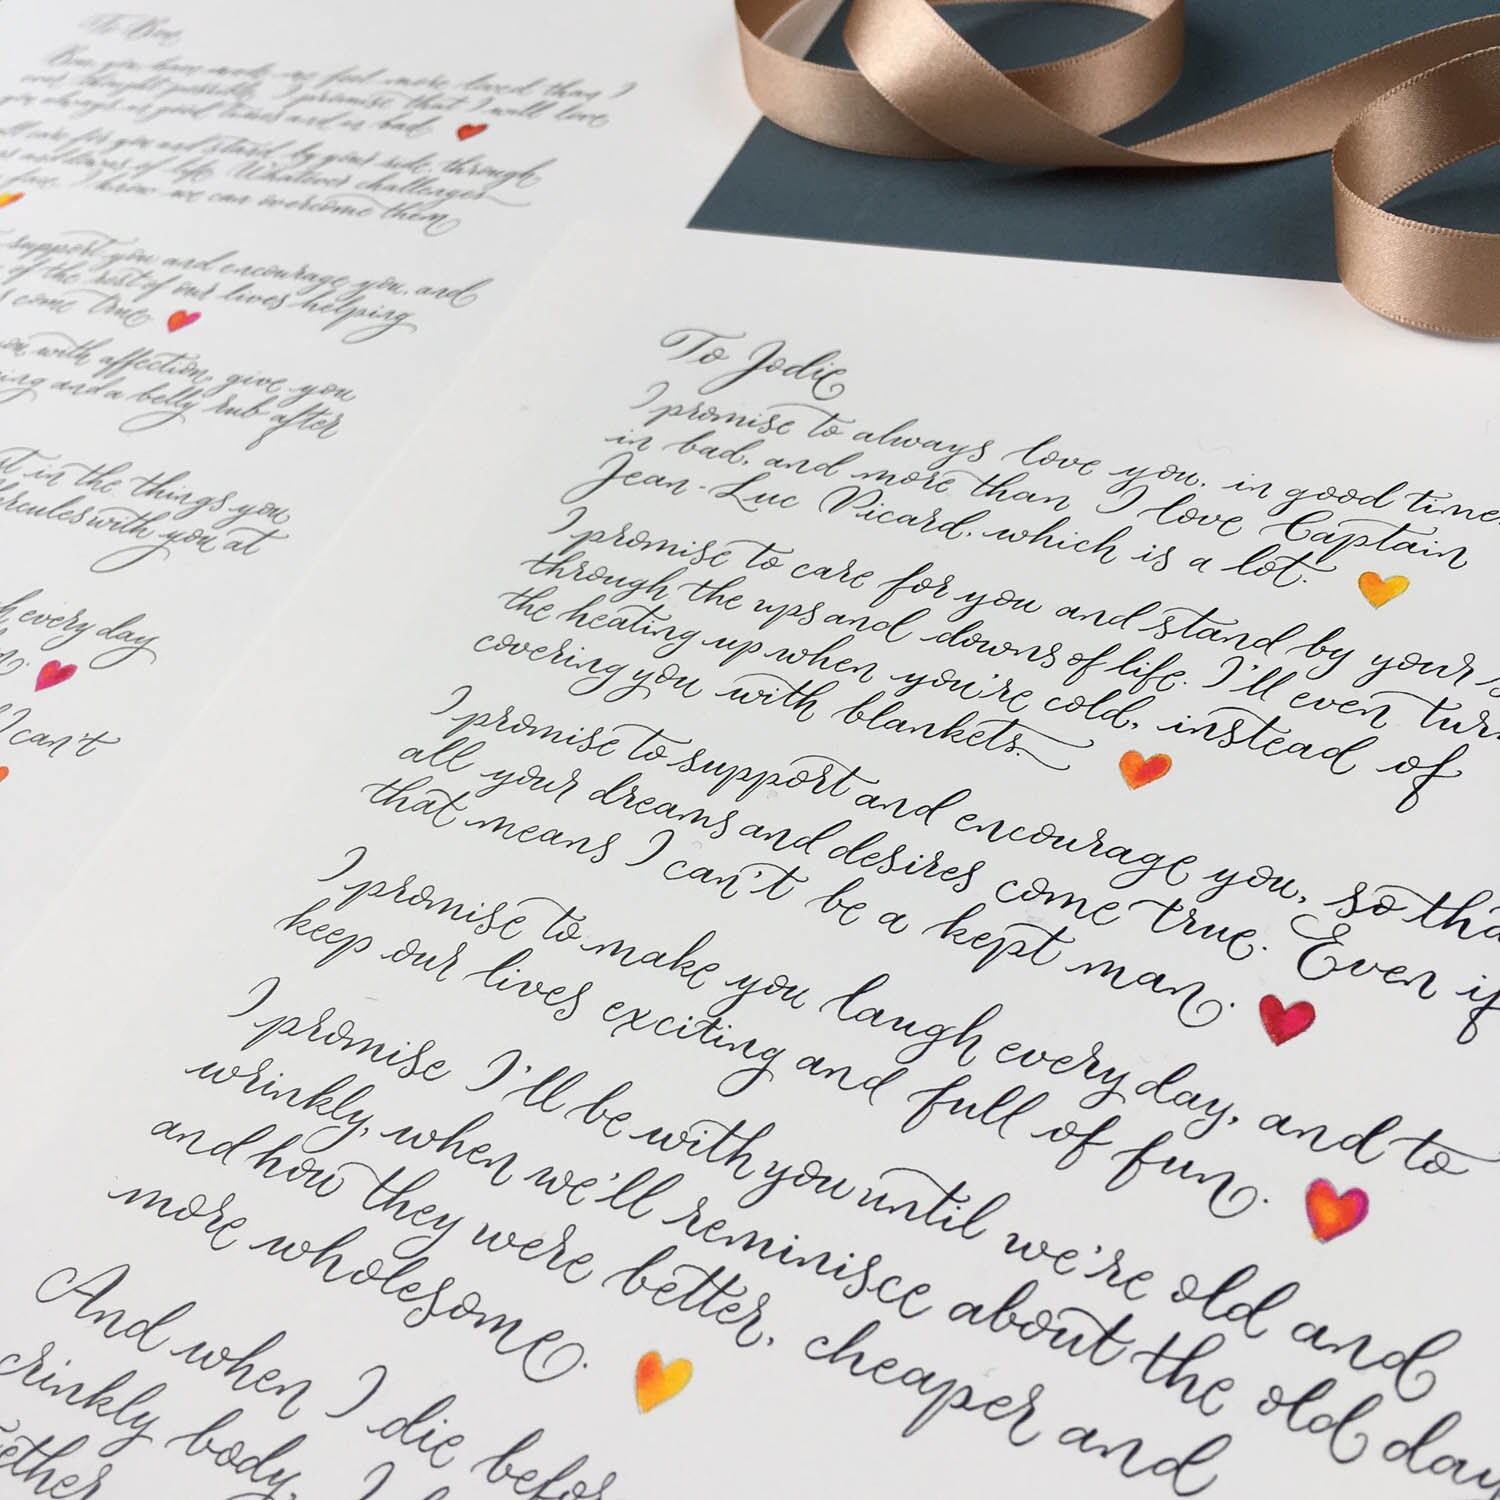 To Jodie
I promise to always love you, in good times
in bad, and more than I love Captain
Jean-Luc Picard, which is a lot.
I promise to care for you and stand by your
through the ups and downs of life. I'll even turn
the heating up when you're cold, instead of
covering you with blankets.
I promise to support and encourage you, so tha
all your dreams and desires come true. Even if
that means I can't be a kept man.
I promise to make you laugh every day, and to
keep our lives exciting and full of fun.
I promise I'll be with you until we're old and
wrinkly, when we'll reminisce about the old day
and how they were better, cheaper and
more wholesome.
And when I die befor
crinkly body, I
ether
you have made me feel more loved than I
ever thought possible. I promise that I will love
you always in good times and in bad
care for you and stand by your side, through
and downs of life. Whatever challenges
face, I know we can overcome them
support you and encourage you, and
of the rest of our lives helping
come true
with affection, give you
ing and a belly rub after
t in the things you
ercules with you at
h every day
I can't